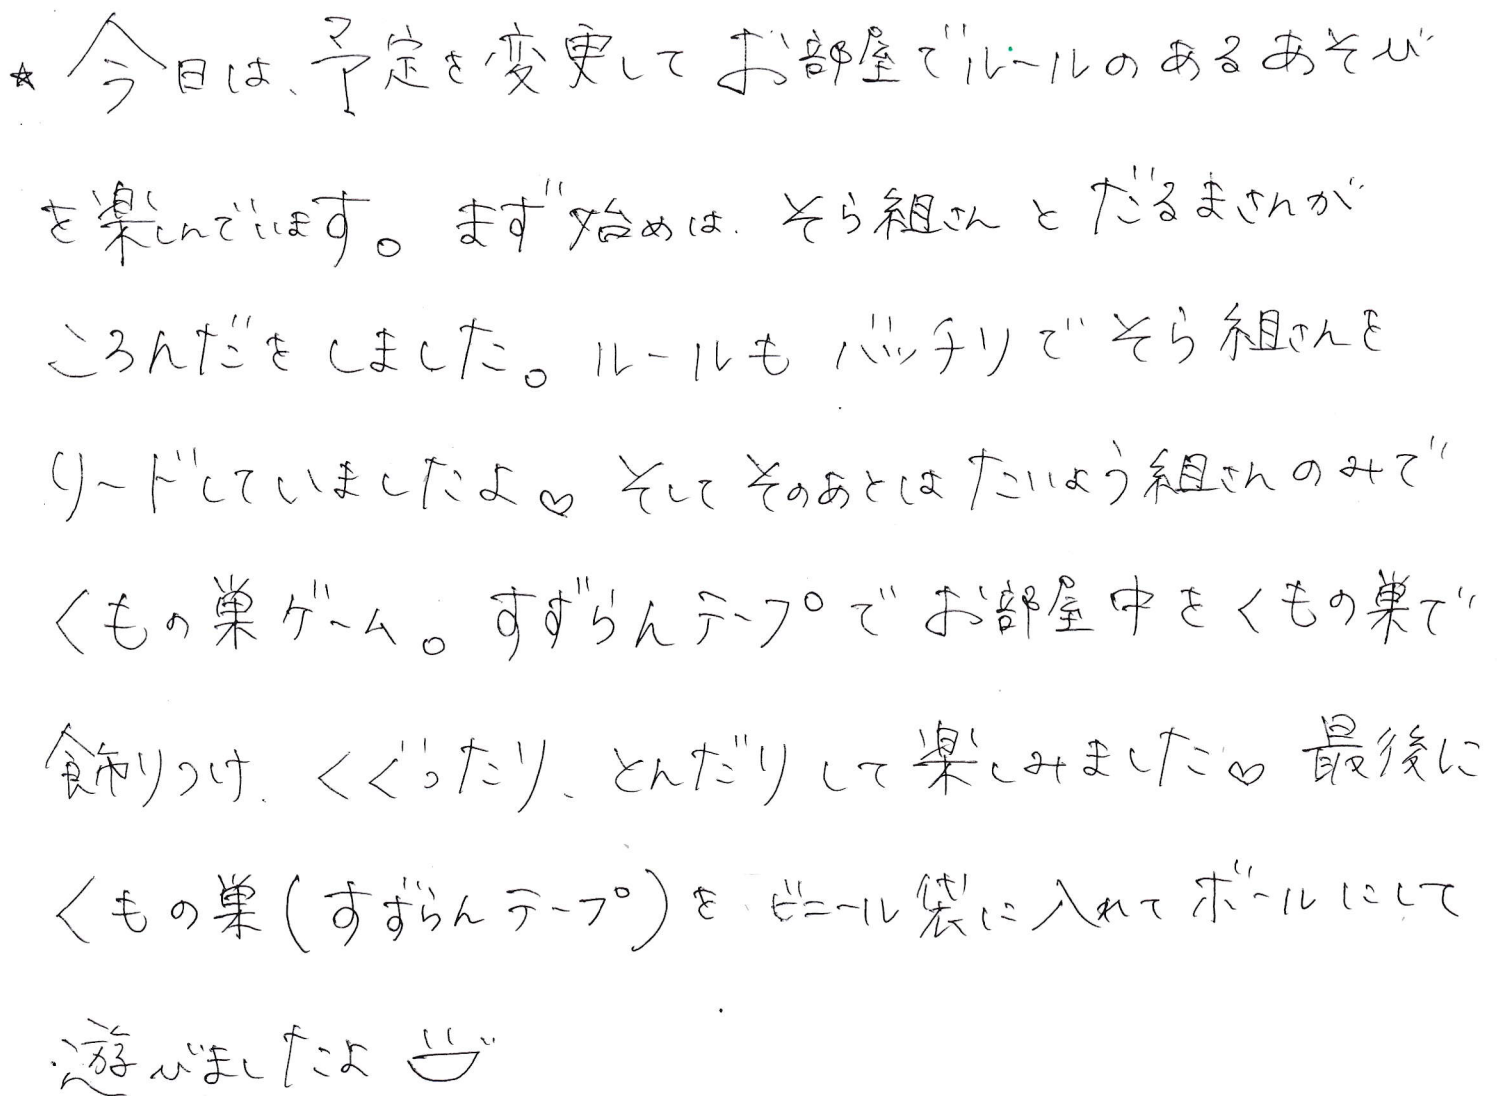 ☆ 今日は、予定を変更してお部屋でルールのあるあそび
を楽しんでいます。まず始めは、そら組さんとだるまさんが
ころんだをしました。ルールもバッチリでそら組さんを
リードしていましたよ♡ そしてそのあとはたいよう組さんのみで
くもの巣ゲーム。すずらんテープでお部屋中をくもの巣で
飾りつけ、くぐったり、とんだりして楽しみました♡ 最後に
くもの巣(すずらんテープ)をビニール袋に入れてボールにして
遊びましたよ